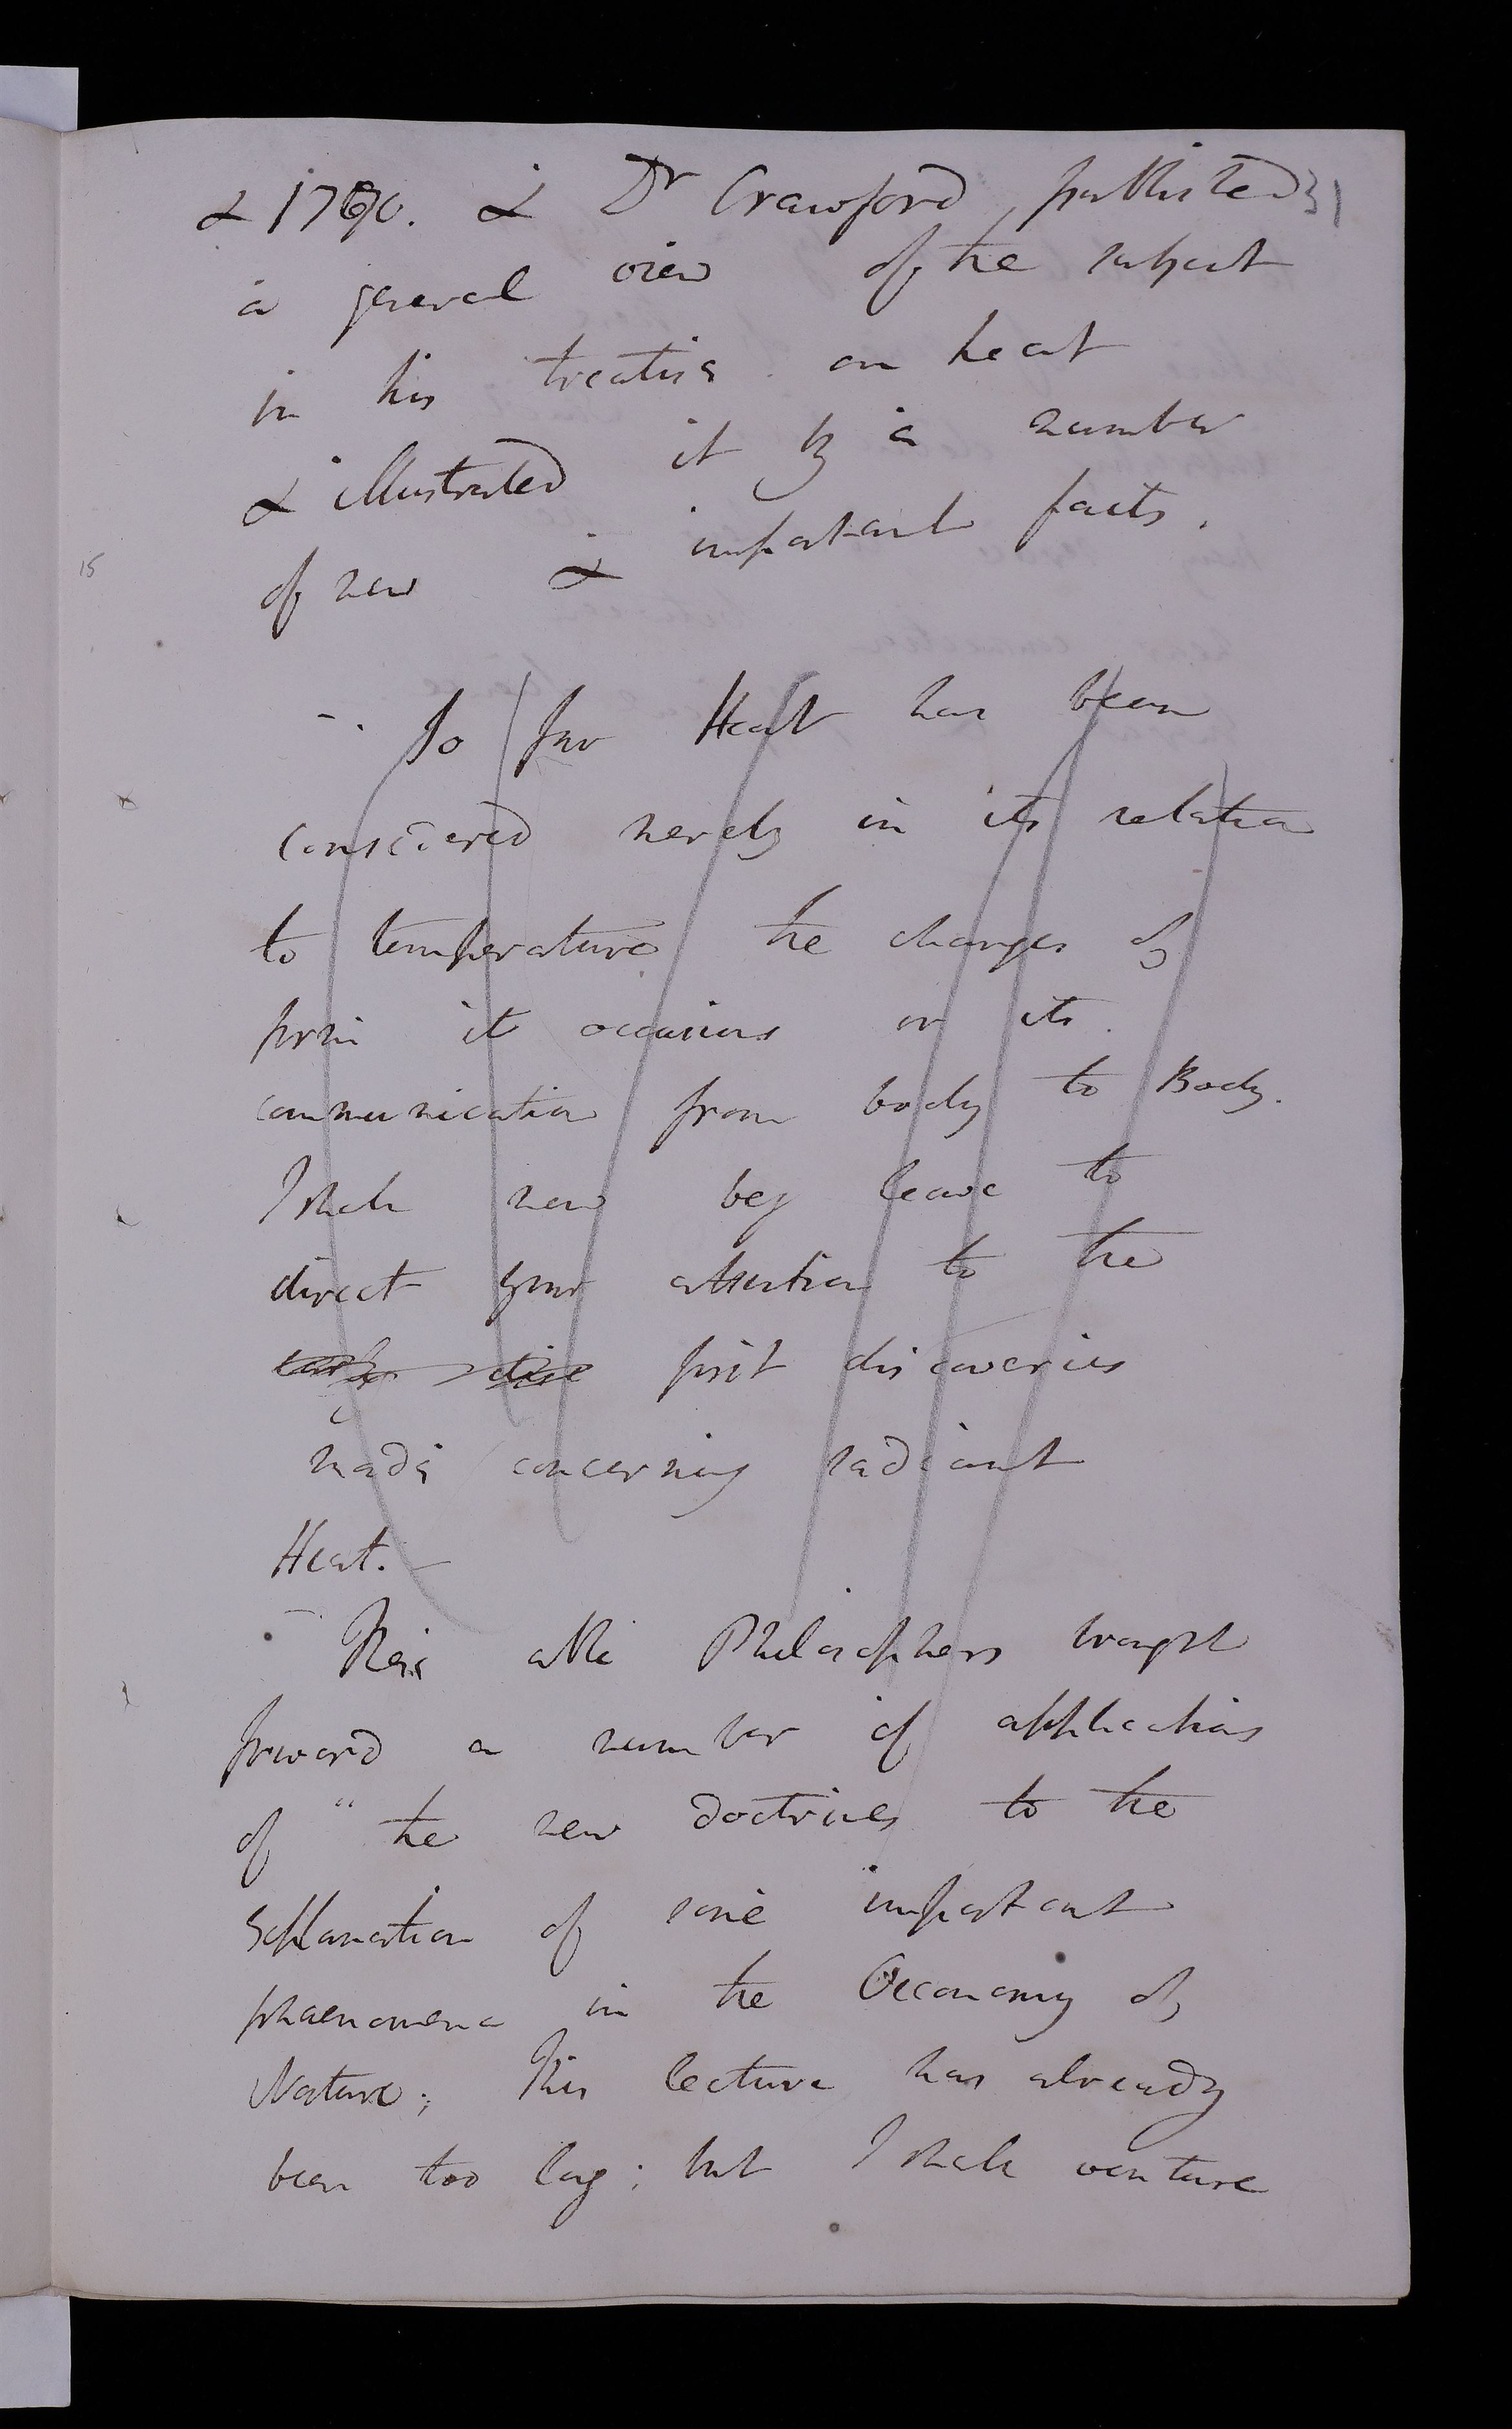 & 1790. & Dr Crawford published 31
a general view of the subject
in his treatise on heat
& illustrated it by a number
of new & important facts.
15
So far Heat has been
considered merely in its relation
to temperature the changes of
form it occasions or its
communication from body to Body.
I shall now beg leave to
direct your attention to the
first discoveries
made concerning radiant
Heat. —
These able Philosophers brought
forward a number of applications
of the new doctrines to the
Explanation of some important
phaenomena in the Oeconomy of
Nature; This lecture has already
been too long: but I shall venture